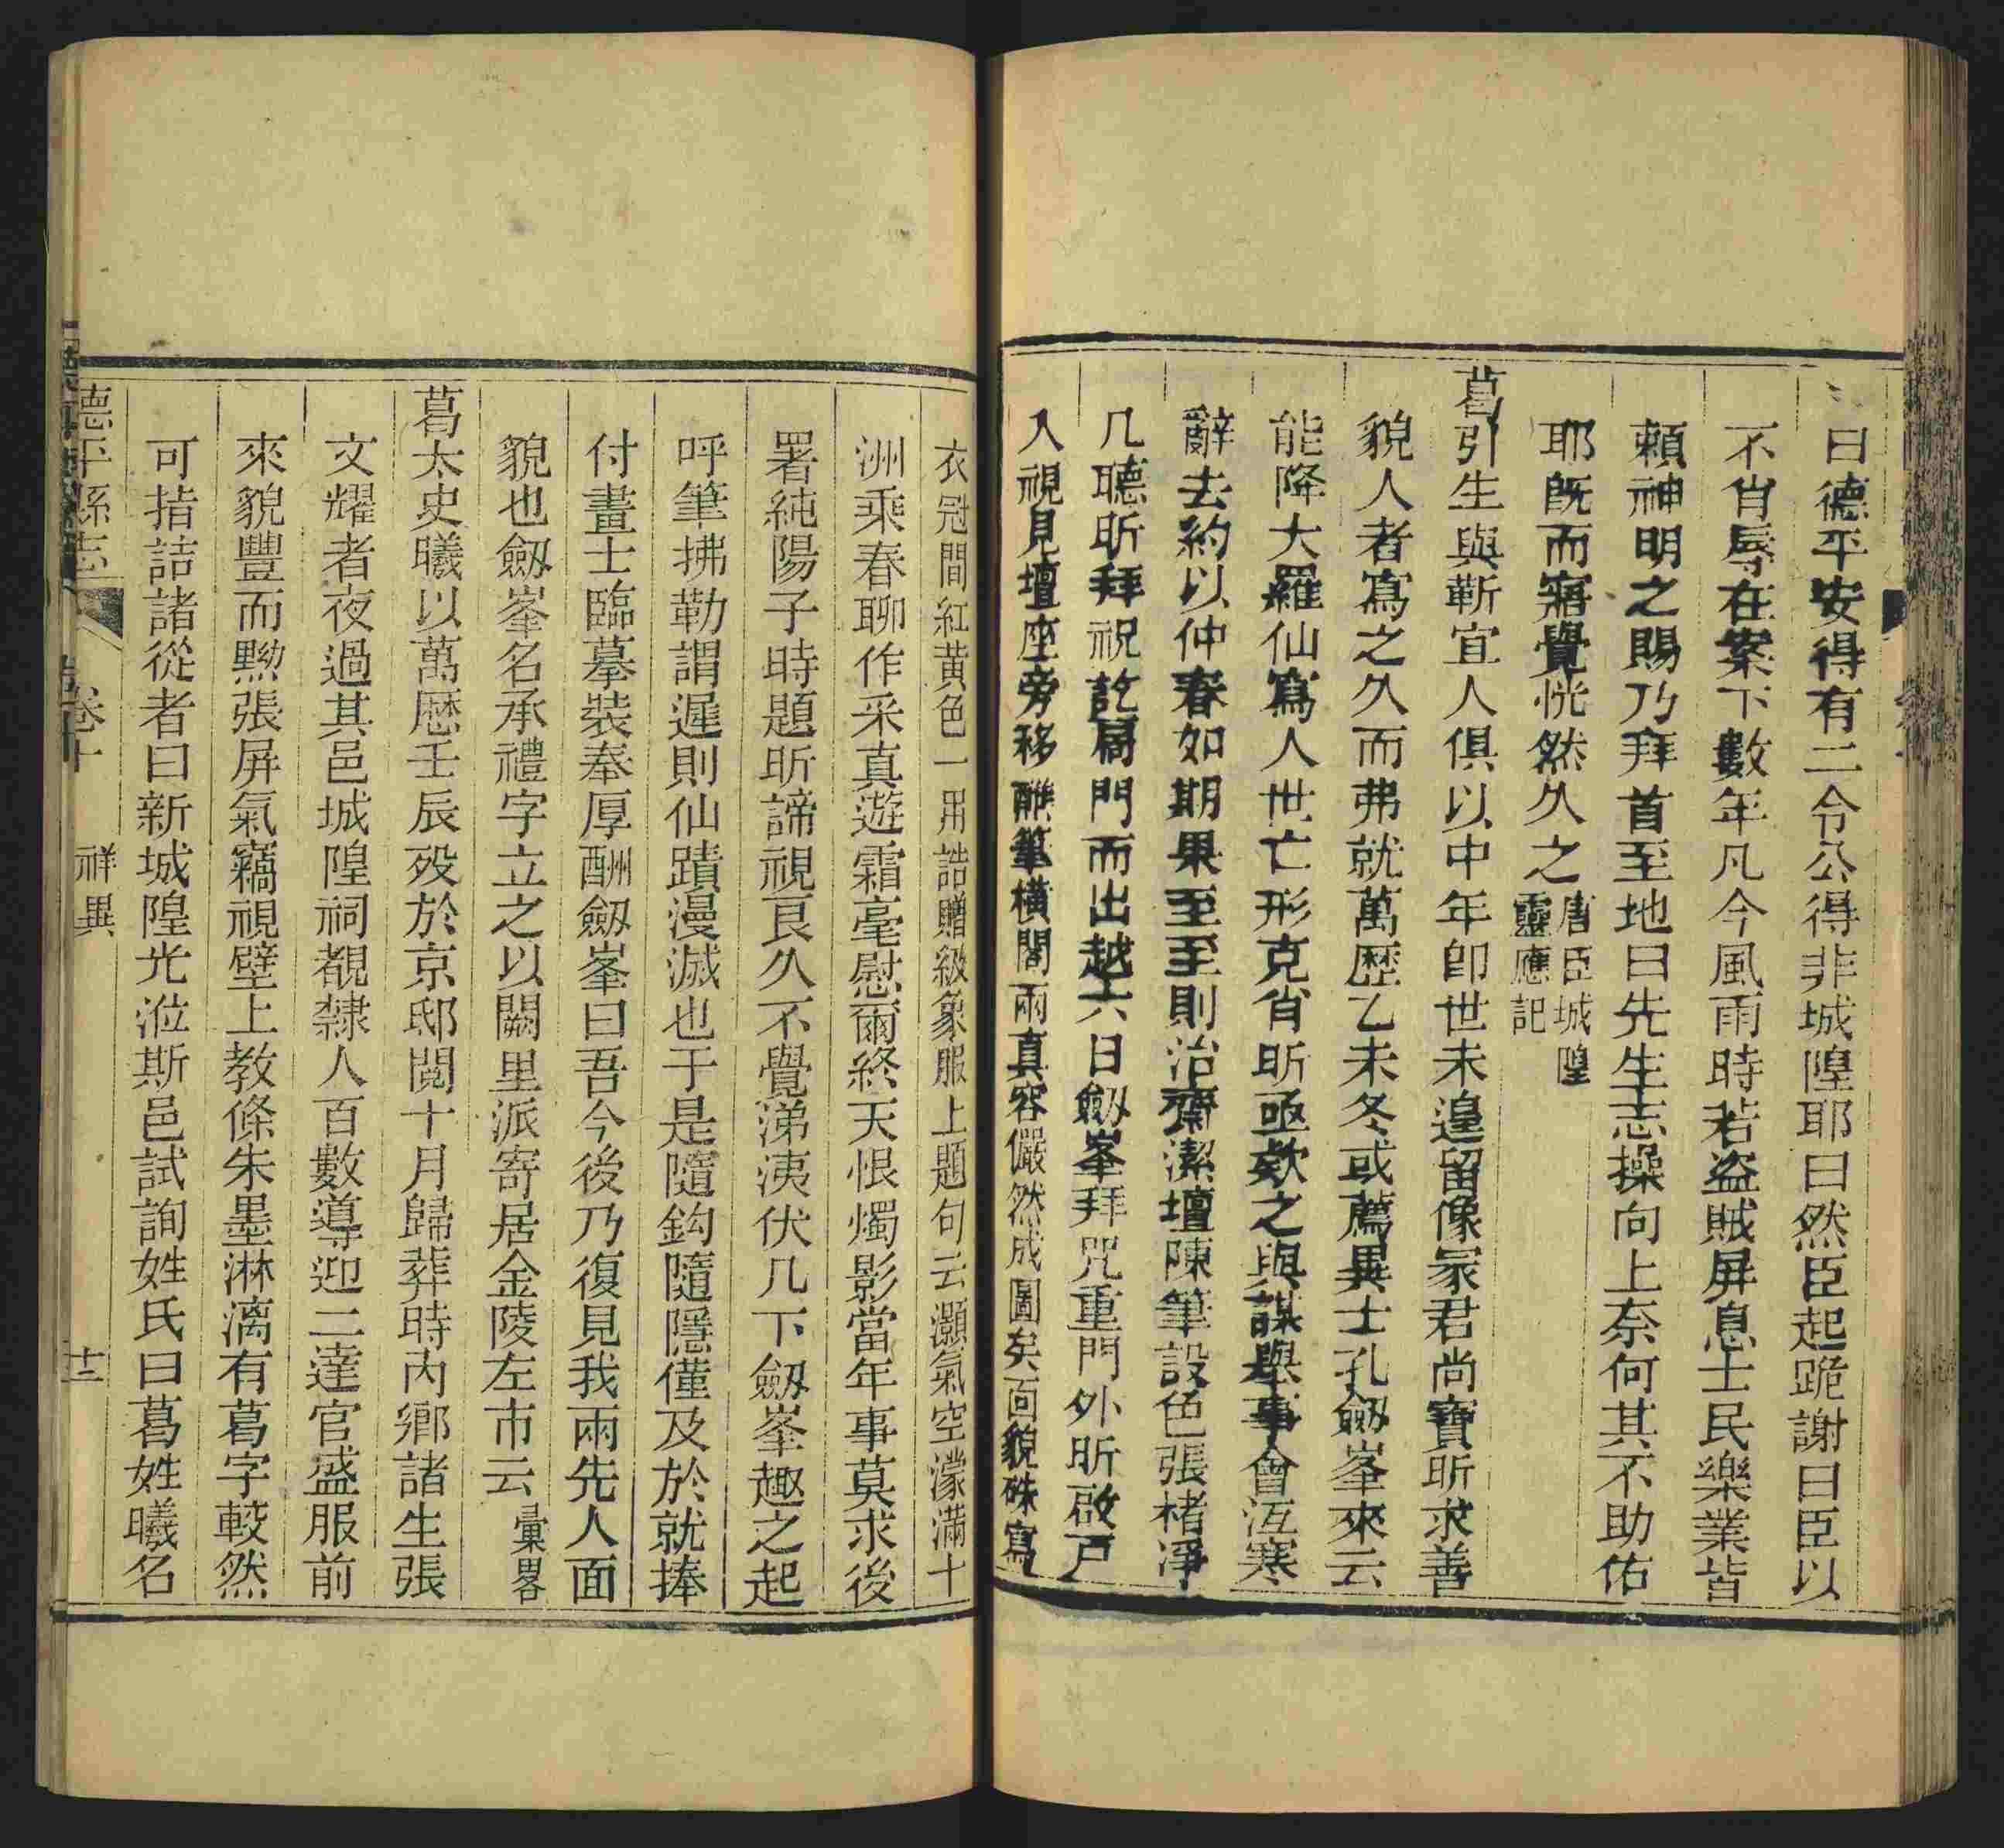 曰德平安得有二令公得非城隍耶曰然臣起跪謝曰臣以
不肖辱在案下數年凡今風雨時若盗賊屏息士民樂業皆
賴神明之賜乃拜首至地曰先生志操向上奈何其不助佑
耶旣而寤覺恍然久之唐臣城隍靈應記
葛引生與靳宜人俱以中年卽世未遑留像冡君尚寶昕求善
貌人者寫之久而弗就萬歷乙未冬或薦異士孔劔峯來云
能降大羅仙寫人世亡形克肖昕亟欵之與謀與事會沍寒
辭去約以仲春如期果至至則治齋潔壇陳筆設色張楮淨
几聽昕拜祝訖扃門而出越六日劔峯拜咒重門外昕啟戸
入視見壇座旁移醮筆橫閣兩真容儼然成圖矣面貌硃寫
衣冠間紅黄色一用誥贈級象服上題句云灝氣空濛滿十
洲乘春聊作采真遊霜毫慰爾終天恨燭影當年事莫求後
署純陽子時題昕諦視良久不覺涕洟伏几下劔峯趣之起
呼筆拂勒謂遲則仙蹟漫滅也于是隨鈎隨隱僅及於就捧
付畫士臨摹裝奉厚酬劔峯曰吾今後乃復見我兩先人面
貌也劔峯名承禮字立之以闕里派寄居金陵左市云彙畧
葛太史曦以萬歷壬辰殁於京邸閱十月歸葬時丙鄉諸生張
文耀者夜過其邑城隍祠覩隸人百數導迎二達官盛服前
來貌豐而黝張屏氣竊視壁上教條朱墨淋漓有葛字較然
可指詰諸從者曰新城隍光涖斯邑試詢姓氏曰葛姓曦名
德平縣志 卷十 祥異 十三